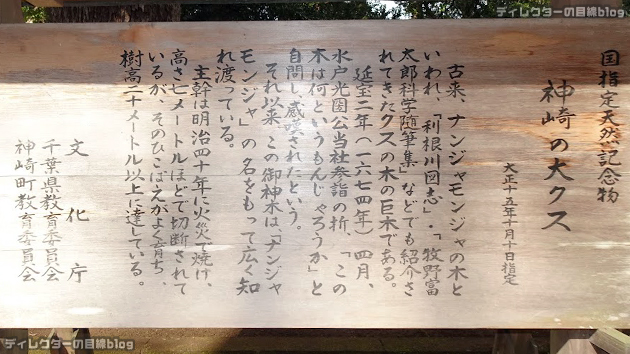 ディレクターの目線blog
国指定天然記念物
神崎の大クス
大正十五年十月十日指定
古来、ナンジャモンジャの木と
いわれ、「利根川図志」・「牧野富
太郎科学随筆集」などでも紹介さ
れてきたクスの木の巨木である。
延宝二年(一六七四年)四月、
水戸光圀公当社参詣の折、「この
木は何というもんじゃろうか」と
自問し、感嘆されたという。
それ以来、この御神木は、「ナンジャ
モンジャ」の名をもって広く知
れ渡っている。
主幹は明治四十年に火災で焼け、
高さ七メートルほどで切断されて
いるが、そのひこばえがよく育ち、
樹高二十メートル以上に達している。
文化庁
千葉県教育委員会
神崎町教育委員会
ディレクターの目線blog
ディレクターの目線blog